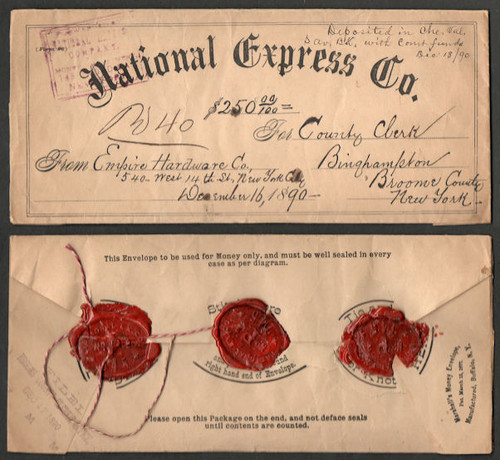 Deposited in Che. Val.
Sav. Bk. with Court funds
Dec 18/90
National Express Co.
$250 00/100
For County Clerk
From Empire Hardware Co,
Binghampton
540 West 14th St, New York City
Broome County
December 16, 1890
New York
This Envelope to be used for Money only, and must be well sealed in every
case as per diagram.
and
right hand end of Envelope.
Knot
Marshall's Money Envelope,
Manufactured, Buffalo, N. Y.
Please open this Package on the end, and not deface seals
until contents are counted.